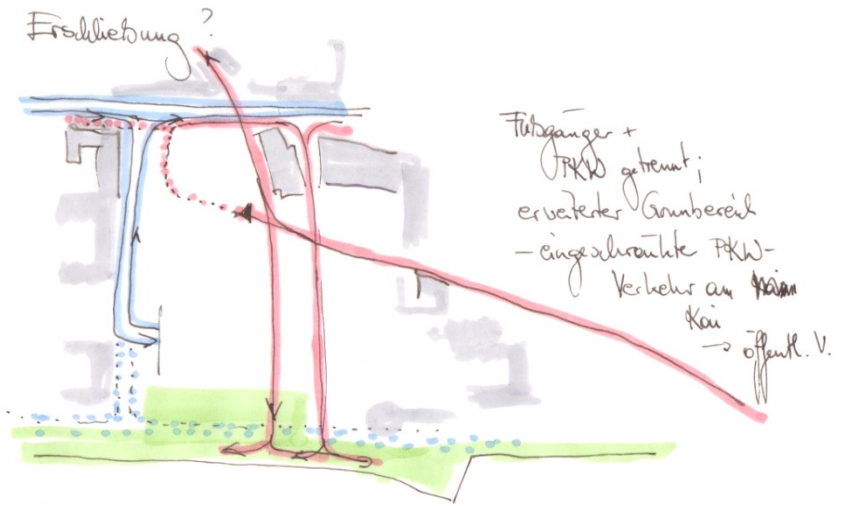 Erschließung?
Fußgänger +
PKW getrennt;
erweiterter Grünbereich
- eingeschränkter PKW-
Verkehr am
Kai
→ öffentl. V.